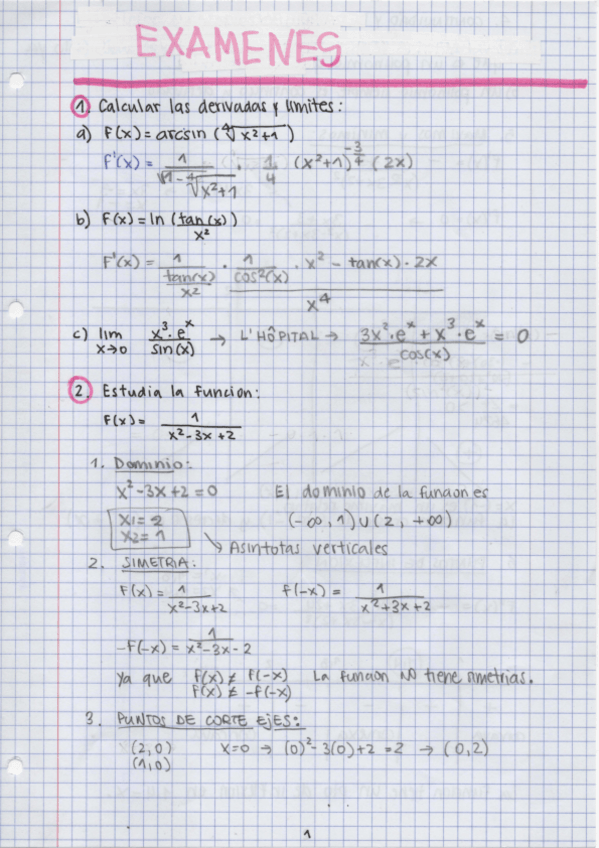 EXAMENES
1. Calcular las derivadas y límites:
a) F(x) = arcsin (∜(x²+1))
F'(x) = 1/√(1-∜(x²+1)) · 1/4 (x²+1)^(-3/4) (2x)
b) F(x) = ln (tan(x)/x²)
F'(x) = 1/(tan(x)/x²) · (1/cos²(x) · x² - tan(x) · 2x)/x⁴
c) lim x→0 x³·eˣ/sin(x) → L'HÔPITAL → (3x²·eˣ + x³·eˣ)/cos(x) = 0
2. Estudia la funcion:
F(x) = 1/(x²-3x+2)
1. Dominio:
x²-3x+2=0 El dominio de la funcion es
x1=2 (-∞,1)∪(2,+∞)
x2=1 ↘ Asintotas verticales
2. SIMETRIA:
F(x) = 1/(x²-3x+2) f(-x) = 1/(x²+3x+2)
-f(-x) = 1/(x²-3x-2)
Ya que f(x) ≠ f(-x) La funcion NO tiene simetrias.
f(x) ≠ -f(-x)
3. PUNTOS DE CORTE EJES:
(2,0) x=0 → (0)²-3(0)+2=2 → (0,2)
(1,0)
1